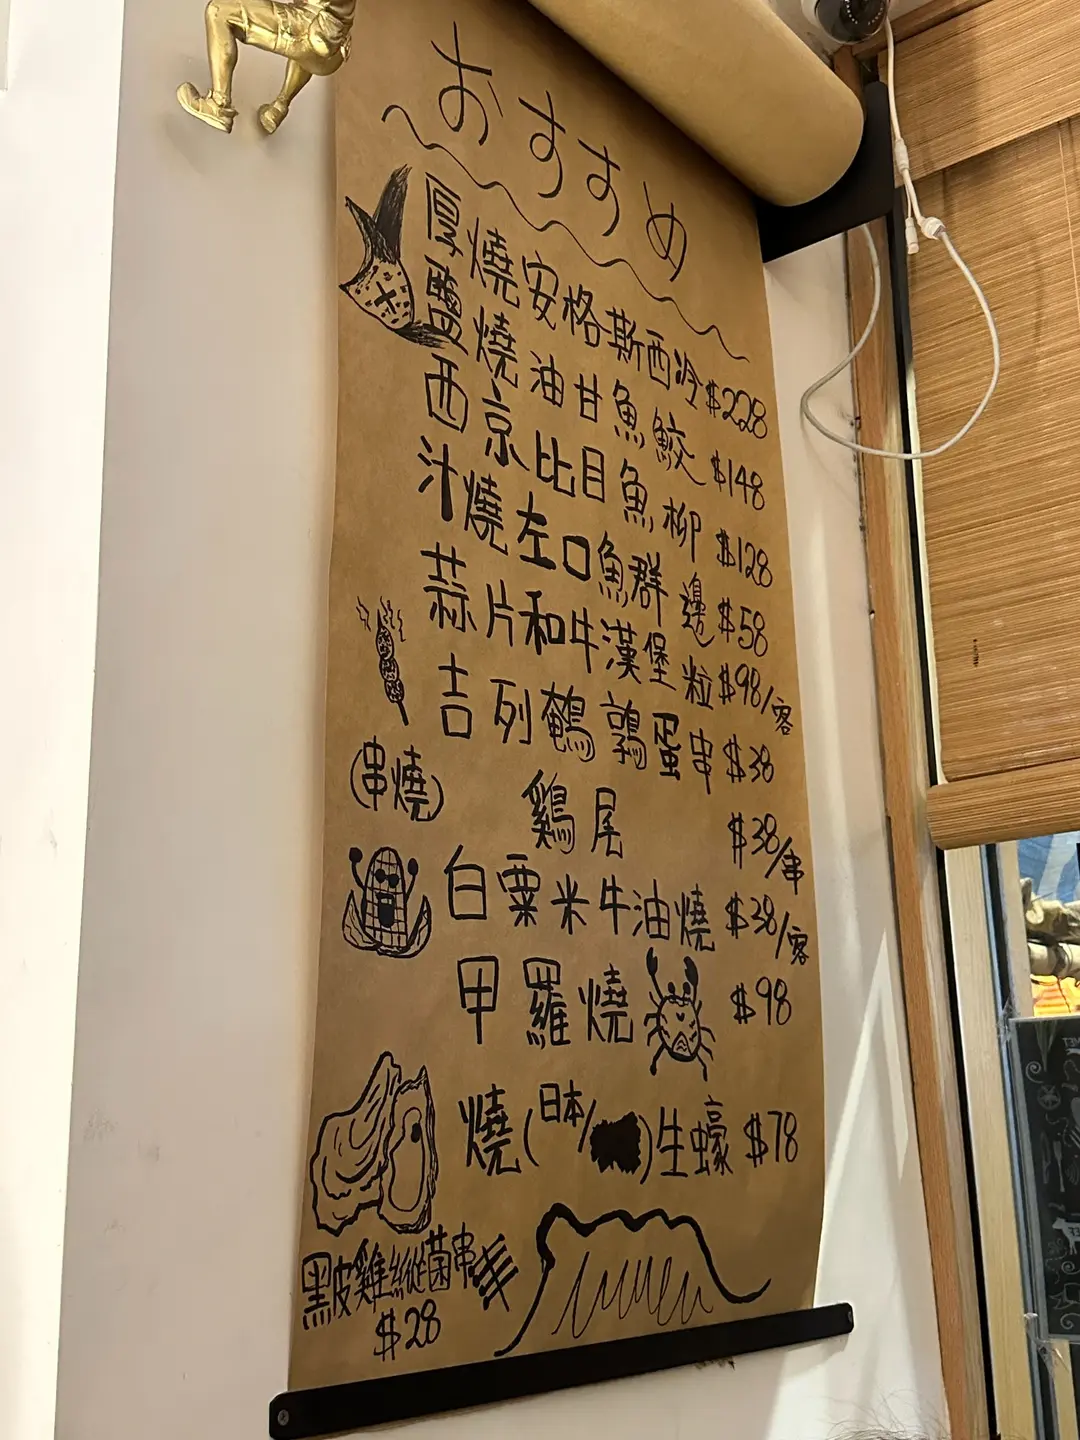 おすすめ
厚燒安格斯西冷 $228
鹽燒油甘魚鮫 $148
西京比目魚柳 $128
汁燒左口魚群邊 $58
蒜片和牛漢堡粒 $98/客
吉列鵪鶉蛋串 $38
(串燒)
鷄尾 $38/串
白粟米牛油燒 $38/客
甲羅燒 $98
燒(日本/)生蠔 $78
黑皮雞縱菌串
$28